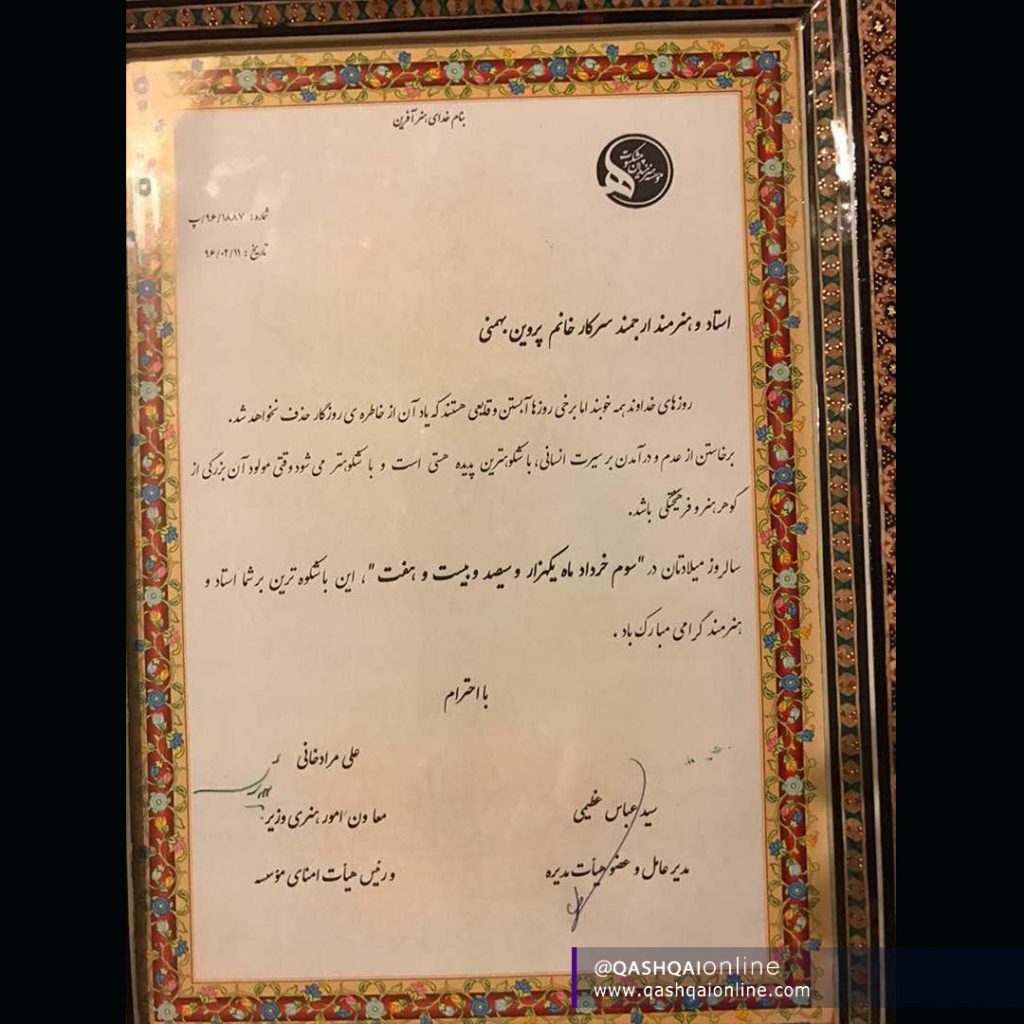 بنام خدای هنرآفرین
موسسه هنرمندان پیشکسوت
شماره: ۹۶/۱۸۸۷/پ
تاریخ: ۹۶/۰۲/۱۱
استاد و هنرمند ارجمند سرکار خانم پروین بهمنی
روزهای خداوند همه خوبند اما برخی روزها آبستن وقایعی هستند که یاد آن از خاطره ی روزگار حذف نخواهد شد.
برخاستن از عدم و درآمدن بر سیرت انسانی، با شکوهترین پدیده هستی است و با شکوهتر می شود وقتی مولود آن بزرگی از
گوهر هنر و فرهیختگی باشد.
سالروز میلادتان در "سوم خرداد ماه یکهزار و سیصد و بیست و هفت"، این باشکوه ترین بر شما استاد و
هنرمند گرامی مبارک باد.
با احترام
سید عباس عظیمی
مدیر عامل و عضو هیأت مدیره
علی مرادخانی
معاون امور هنری وزیر
و رئیس هیأت امنای مؤسسه
@QASHQAIonline
www.qashqaionline.com